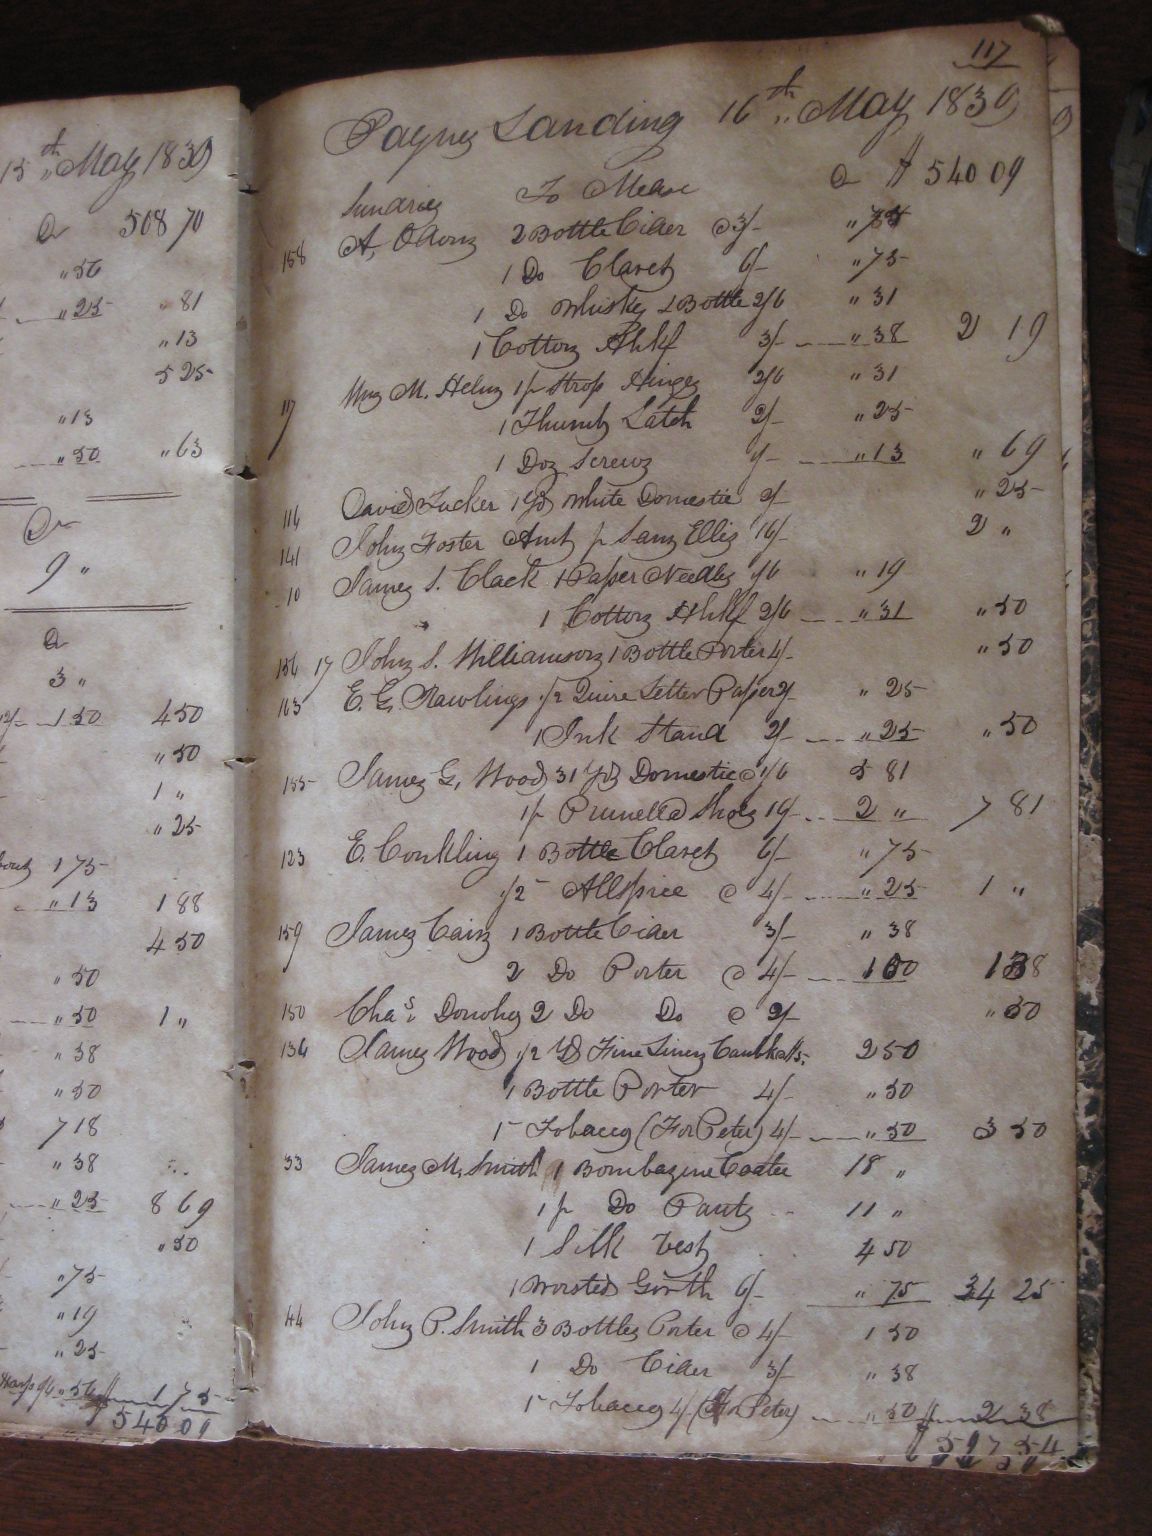 15th " May 1839
a 508 70
" 56
" 25 " 81
" 13
5 25
" 13
" 50 " 63
Dr
9 "
a
3 "
12/- 1 50 4 50
" 50
1 "
" 25
1 75
" 13 1 88
4 50
" 50
" 50 1 "
" 38
" 50
7 18
" 38
" 25 8 69
" 50
" 75
" 19
" 25
" 56 $ 1 75
$ 540 09
117
Paynes Landing 16th " May 1839
Sundries To Mdse a $ 540 09
158 A. 2 Bottle Cider @ 3/- " 75
1 Do Claret 6/- " 75
1 Do Whiskey & Bottle 2/6 " 31
1 Cotton Hhkf 3/- " 38 2 19
117 Wm M. Helm 1 pr Strap Hinges 2/6 " 31
1 Thumb Latch 2/- " 25
1 Doz Screws 1/- " 13 " 69
116 David Tucker 1 Yd White Domestic 2/- " 25
141 John Foster Amt pr Saml Ellis 16/- 2 "
10 James S. Clack 1 Paper Needles 1/6 " 19
1 Cotton Hhkf 2/6 " 31 " 50
156 17 John S. Williamson 1 Bottle Porter 4/- " 50
163 E. G. Rawlings 1/2 Quire Letter Paper 2/- " 25
1 Ink Stand 2/- " 25 " 50
155 James G. Wood 31 Yds Domestic @ 1/6 5 81
1 pr Prunella Shoes 16/- 2 " 7 81
123 E. Conkling 1 Bottle Claret 6/- " 75
1/2 Allspice @ 4/- " 25 1 "
159 James Cain 1 Bottle Cider 3/- " 38
2 Do Porter @ 4/- 1 00 1 38
150 Chas. Donohy 2 Do Do @ 2/- " 50
136 James Wood 1/2 Yd Fine Linen Cambrick 5/- 2 50
1 Bottle Porter 4/- " 50
1 Tobacco (For Peter) 4/- " 50 3 50
33 James M. Smith 1 Bombazine Coatee 18 "
1 pr Do Pants 11 "
1 Silk Vest 4 50
1 Worsted Girth 6/- " 75 34 25
44 John P. Smith 3 Bottles Porter @ 4/- 1 50
1 Do Cider 3/- " 38
1 Tobacco 4/- (For Peter) " 50 $ 2 38
$ 597 54